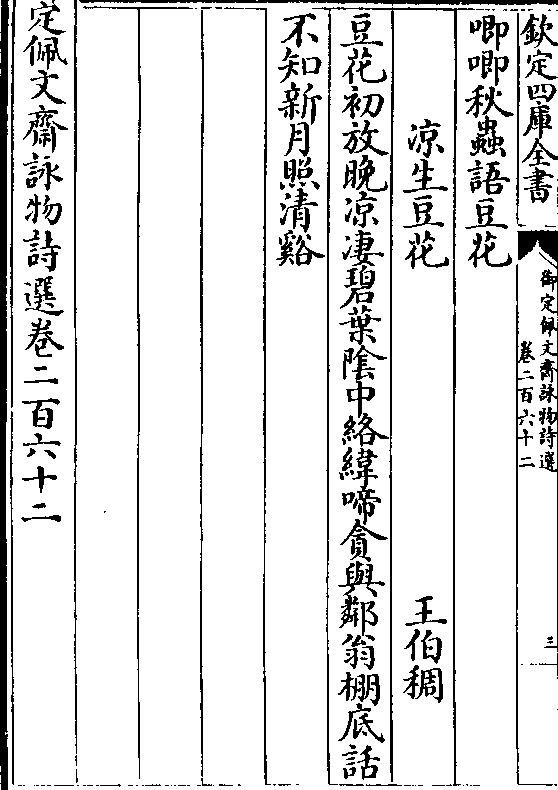 欽定四庫全書
御定佩文齋詠物詩選
卷二百六十二
三
唧唧秋蟲語豆花
凉生豆花
王伯稠
豆花初放晚凉凄碧葉陰中絡緯啼貪與鄰翁棚底話
不知新月照清谿
定佩文齋詠物詩選卷二百六十二